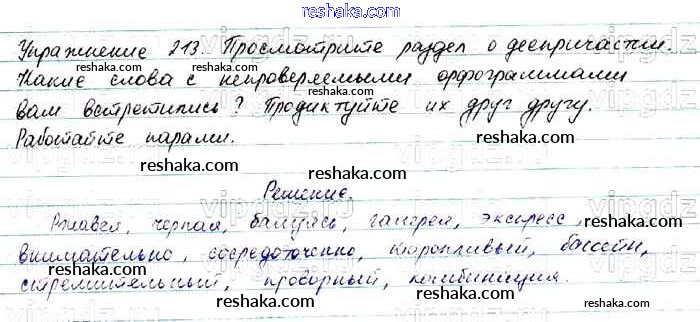 reshaka.com
Упражнение 213. Просмотрите раздел о деепричастии.
reshaka.com reshaka.com
Какие слова с непроверяемыми орфограммами
вам встретились? Продиктуйте их друг другу.
reshaka.com
Работайте парами.
reshaka.com
Решение.
reshaka.com reshaka.com
Ржавея, черпая, балуясь, галерея, экспресс,
внимательно, сосредоточенно, торопливый, бассейн,
reshaka.com
стремительный, проворный, комбинация.
reshaka.com reshaka.com